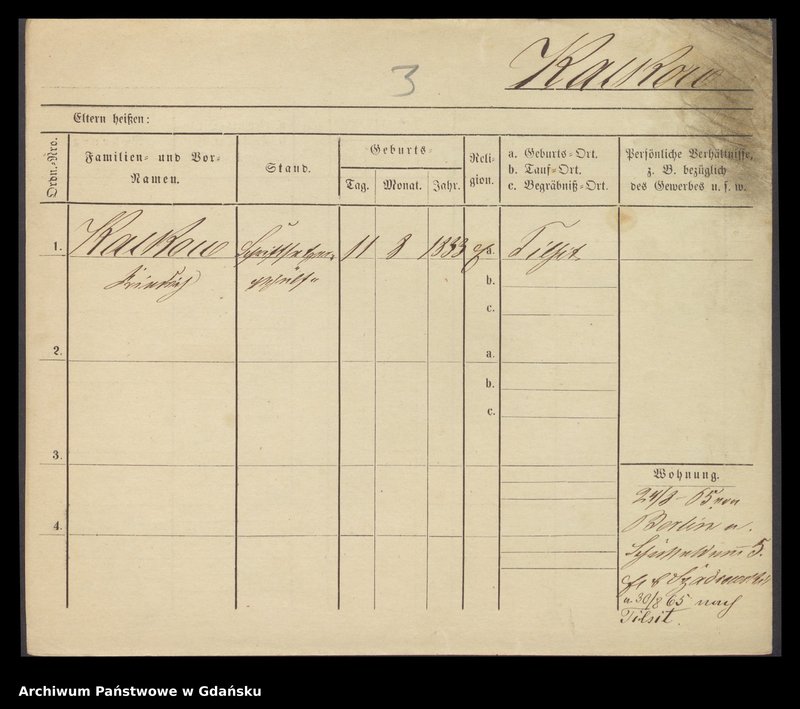 3
Kaukow
Eltern heißen:
Ordn.-Nro.
Familien- und Vor-
Namen.
Stand.
Geburts-
Tag.
Monat.
Jahr.
Reli-
gion.
a. Geburts-Ort.
b. Tauf-Ort.
c. Begräbniß-Ort.
Persönliche Verhältnisse,
z. B. bezüglich
des Gewerbes u. s. w.
1.
Kaukow
Schriftsetzer
11
8
1833
a.
Tilsit
b.
c.
2.
a.
b.
c.
3.
4.
Wohnung.
24/8 65 von
Berlin n.
Schüsseldamm 5.
a. 30/8 65 nach
Tilsit.
Archiwum Państwowe w Gdańsku